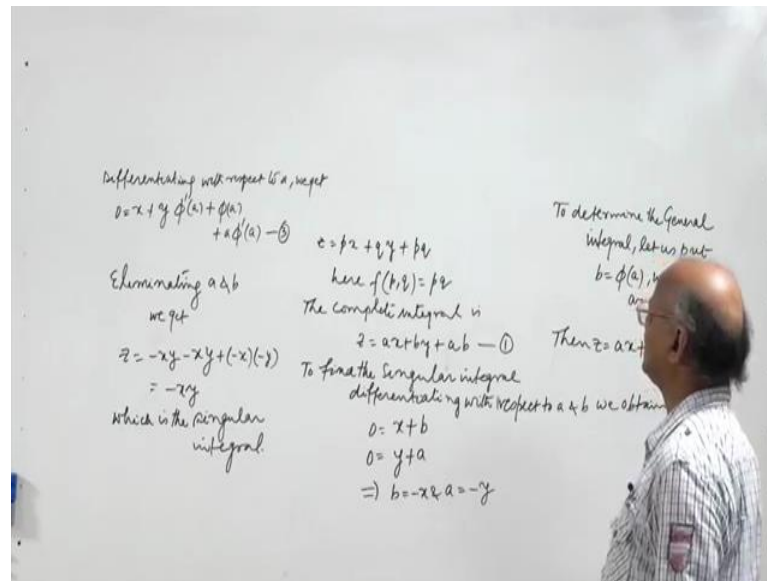 Differentiating with respect to a, we get
0 = x + y φ'(a) + φ(a)
+ a φ'(a) — ③
Eleminating a & b
we get
z = -xy - xy + (-x)(-y)
= -xy
which is the singular
integral.
z = px + qy + pq
here f(p,q) = pq
The complete integral is
z = ax + by + ab — ①
To find the Singular integral
differentiating with respect to a & b we obtain
0 = x + b
0 = y + a
⇒ b = -x & a = -y
To determine the General
integral, let us put
b = φ(a),
Then z = ax +